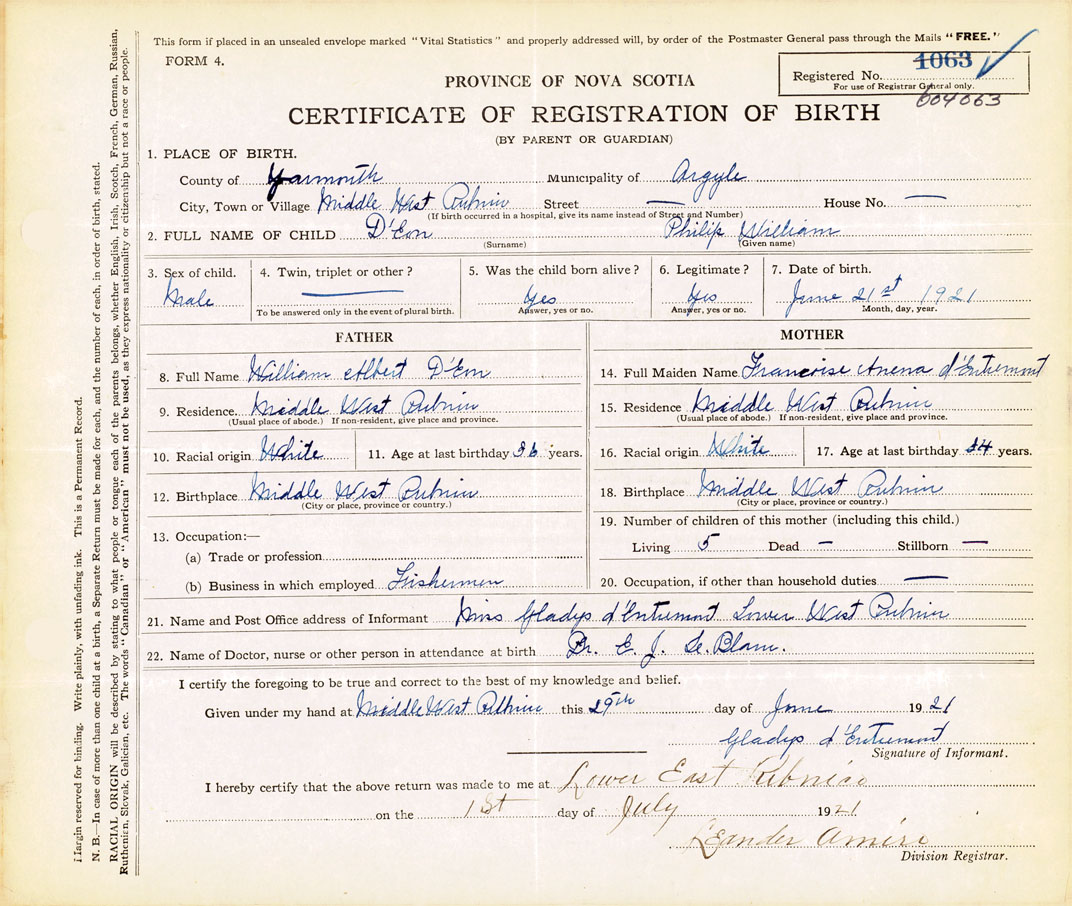 This form if placed in an unsealed envelope marked "Vital Statistics" and properly addressed will, by order of the Postmaster General pass through the Mails "FREE."
FORM 4.
1063
Registered No.
For use of Registrar General only.
604063
PROVINCE OF NOVA SCOTIA
CERTIFICATE OF REGISTRATION OF BIRTH
(BY PARENT OR GUARDIAN)
1. PLACE OF BIRTH.
County of Yarmouth Municipality of Argyle
City, Town or Village Middle West Pubnico Street — House No. —
(If birth occurred in a hospital, give its name instead of Street and Number)
2. FULL NAME OF CHILD D'Eon Philip William
(Surname) (Given name)
3. Sex of child. 4. Twin, triplet or other? 5. Was the child born alive? 6. Legitimate? 7. Date of birth.
Male — Yes Yes June 21st 1921
To be answered only in the event of plural birth. Answer, yes or no. Answer, yes or no. Month, day, year.
FATHER
8. Full Name William Albert D'Eon
9. Residence. Middle West Pubnico
(Usual place of abode.) If non-resident, give place and province.
10. Racial origin White 11. Age at last birthday 36 years.
12. Birthplace Middle West Pubnico
(City or place, province or country.)
13. Occupation:—
(a) Trade or profession
(b) Business in which employed Fishermen
MOTHER
14. Full Maiden Name Francoise Anena d'Entremont
15. Residence Middle West Pubnico
(Usual place of abode.) If non-resident, give place and province.
16. Racial origin White 17. Age at last birthday 34 years.
18. Birthplace Middle West Pubnico
(City or place, province or country.)
19. Number of children of this mother (including this child.)
Living 5 Dead — Stillborn —
20. Occupation, if other than household duties —
21. Name and Post Office address of Informant Miss Gladys d'Entremont Lower West Pubnico
22. Name of Doctor, nurse or other person in attendance at birth Dr. E. J. Le.Blanc.
I certify the foregoing to be true and correct to the best of my knowledge and belief.
Given under my hand at Middle West Pubnico this 29th day of June 1921
Gladys d'Entremont
Signature of Informant.
I hereby certify that the above return was made to me at Lower East Pubnico
on the 1st day of July 1921
Leander Amiro
Division Registrar.
Margin reserved for binding. Write plainly, with unfading ink. This is a Permanent Record.
N. B.—In case of more than one child at a birth, a Separate Return must be made for each, and the number of each, in order of birth, stated.
RACIAL ORIGIN will be described by stating to what people or tongue each of the parents belongs, whether English, Irish, Scotch, French, German, Russian,
Ruthenian, Slovak, Galician, etc. The words "Canadian" or "American" must not be used, as they express nationality or citizenship but not a race or people.